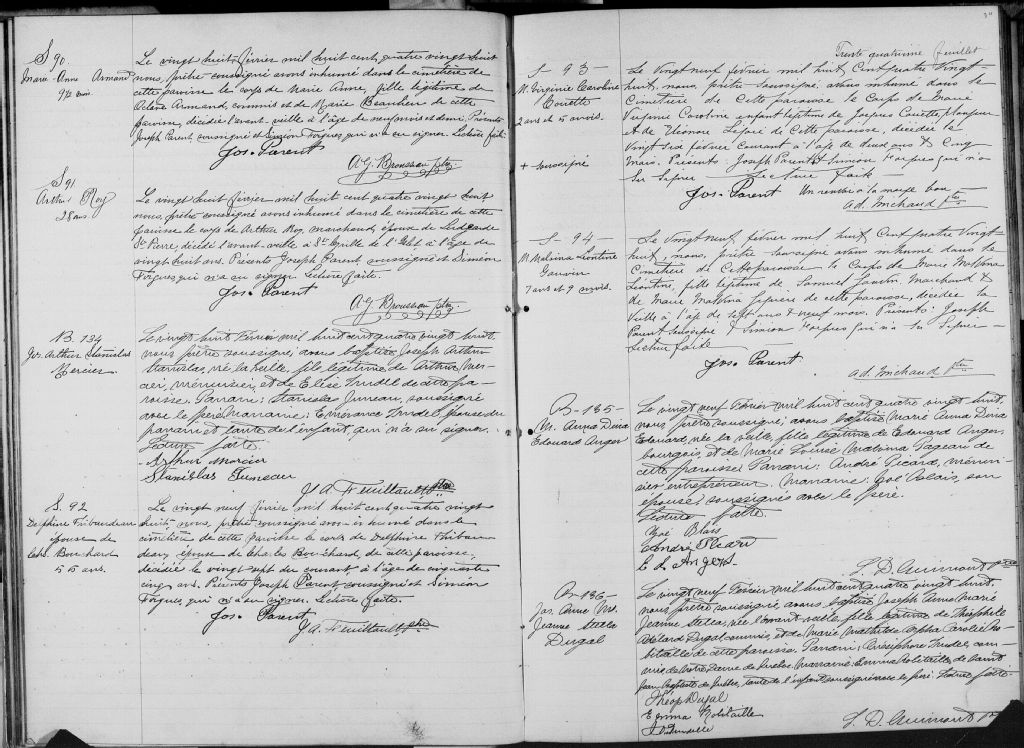 S 90.
Marie-Anne Armand
9½ ans
Le vingt huit février mil huit cent quatre vingt huit
nous, prêtre soussigné avons inhumé dans le cimetière de
cette paroisse le corps de Marie Anne, fille légitime de
Arlène Armand, commis et de Marie Beaulieu de cette
paroisse, décédée l'avant-veille à l'âge de neuf ans et demi. Présents
Joseph Parent, soussigné et Siméon Forgues, qui n'a su signer. Lecture faite.
Jos. Parent
A.G. Brousseau ptre
S 91
Arthur Roy
28 ans
Le vingt huit février mil huit cent quatre vingt huit
nous, prêtre soussigné avons inhumé dans le cimetière de cette
paroisse le corps de Arthur Roy, marchand, époux de
St Pierre, décédé l'avant-veille à à l'âge de
vingt huit ans. Présents Joseph Parent, soussigné et Siméon
Forgues, qui n'a su signer. Lecture faite.
Jos. Parent
A.G. Brousseau ptre
B. 134
Jos. Arthur Stanislas
Mercier
Le vingt huit Février mil huit cent quatre vingt huit,
nous prêtre soussigné, avons baptisé Joseph Arthur
Stanislas, né la veille, fils légitime de Arthur Mer-
cier, menuisier, et de Elise Trudel de cette pa-
roisse. Parrain: Stanislas Juneau, soussigné
avec le père, marraine: Emérance Trudel, épouse du
parrain et tante de l'enfant, qui n'a su signer.
Lecture faite.
Arthur Mercier
Stanislas Juneau
J. A. Feuiltault ptre
S. 92
Delphine Thibaudeau
épouse de
Chs. Bouchard
55 ans.
Le vingt neuf février mil huit cent quatre vingt
huit nous, prêtre soussigné avons inhumé dans le
cimetière de cette paroisse le corps de Delphine Thibau-
deau, épouse de Charles Bouchard, de cette paroisse,
décédée le vingt sept du courant à l'âge de cinquante
cinq ans. Présents Joseph Parent soussigné et Siméon
Forgues, qui n'a su signer. Lecture faite.
Jos. Parent
J. A. Feuiltault ptre
34
Trente quatrième feuillet
S- 93-
M. Virginie Caroline
Couette
2 ans et 5 mois.
+ soussigné
Le Vingt neuf février mil huit Cent quatre Vingt-
huit, nous, prêtre soussigné, avons inhumé dans le
Cimetière de Cette paroisse le Corps de Marie
Virginie Caroline enfant légitime de Jacques Couette, Plombeur
et de Eléonore Lepire de Cette paroisse, décédée le
Vingt six février Courant à l'âge de deux ans & Cinq
Mois. Présents: Joseph Parent + & Simeon Forgues qui n'a
Su Signer - Lecture faite -
Jos. Parent Un renvoi à la marge bon
Ad. Michaud ptre
S- 94-
M. Malvina Léontine
Gauvin
7 ans et 9 mois.
Le Vingt neuf février mil huit Cent quatre Vingt-
huit, nous, prêtre soussigné avons inhumé dans le
Cimetière de Cette paroisse le Corps de Marie Malvina
Léontine, fille légitime de Samuel Gauvin, Marchand &
de Marie Malvina de cette paroisse, décédée la
Veille à l'âge de sept ans & neuf mois. Présents: Joseph
Parent soussigné & Simeon Forgues qui n'a su Signer -
Lecture faite -
Jos. Parent
Ad. Michaud ptre
B- 135-
M. Anna Dina
Edouard Anger
Le vingt neuf Février mil huit cent quatre vingt huit,
nous, prêtre soussigné, avons baptisé Marie Anna Dina
Edouard, née la veille, fille légitime de Edouard Anger,
bourgeois, et de Marie Louise Malvina Pageau de
cette paroisse. Parrain: André Picard, menui-
sier entrepreneur. Marraine: Zoé Blais, son
épouse, soussignés avec le père.
Lecture faite.
Zoé Blais
André Picard
E. d. Angers.
L. D. Guimont ptre
B- 136-
Jos. Anne M.
Jeanne Stella
Dugal
Le vingt neuf Février mil huit cent quatre vingt huit,
nous, prêtre soussigné, avons baptisé Joseph Anne Marie
Jeanne Stella, née l'avant veille, fille légitime de Théophile
Adélard Dugal commis, et de Marie Mathilde Alpha Carolie Ro-
bitaille de cette paroisse. Parrain; Onésiphore Trudel, com-
mis de Notre Dame de Québec. Marraine: Emma Robitaille de Saint
Jean Baptiste de Québec, tante de l'enfant soussignés avec le père. Lecture faite.
Théop Dugal
Emma Robitaille
L. D. Guimont ptre